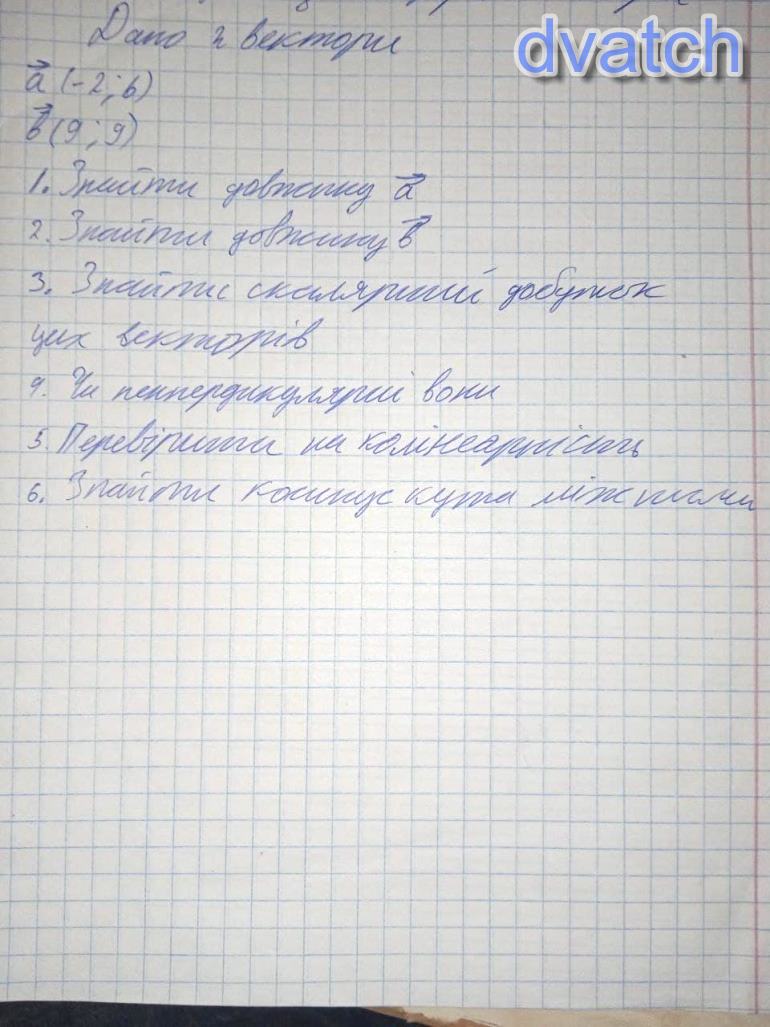 dvatch
Дано 2 вектори
a⃗ (-2; 6)
b⃗ (9; 9)
1. Знайти довжину a⃗
2. Знайти довжину b⃗
3. Знайти скалярний добуток
цих векторів
4. Чи пенпердикулярні вони
5. Перевірити на колінеарність
6. Знайти косинус кута між ними